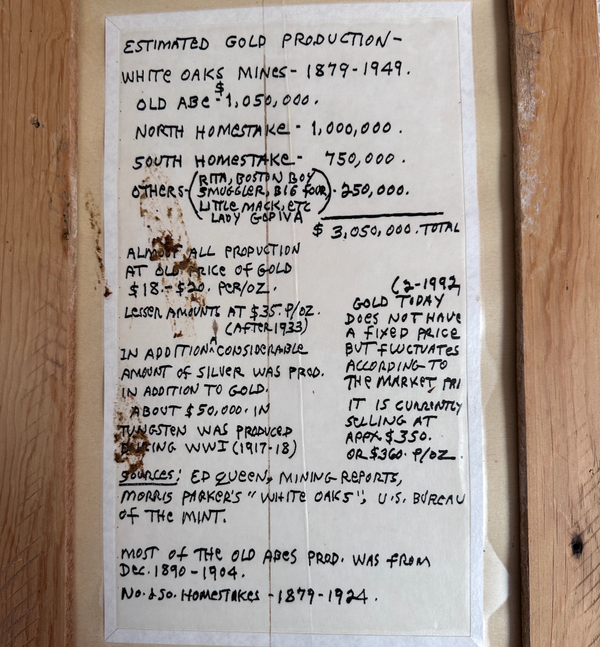 ESTIMATED GOLD PRODUCTION-
WHITE OAKS MINES- 1879-1949.
OLD ABE - $1,050,000.
NORTH HOMESTAKE - 1,000,000.
SOUTH HOMESTAKE- 750,000.
OTHERS- (RITA, BOSTON BOY
SMUGGLER, BIG FOUR,
LITTLE MACK, ETC
LADY GODIVA) - 250,000.
$ 3,050,000. TOTAL
ALMOST ALL PRODUCTION
AT OLD PRICE OF GOLD
$18.-$20. PER/OZ.
LESSER AMOUNTS AT $35. P/OZ.
(AFTER 1933)
IN ADDITION A CONSIDERABLE
AMOUNT OF SILVER WAS PROD.
IN ADDITION TO GOLD.
ABOUT $50,000. IN
TUNGSTEN WAS PRODUCED
DURING WWI (1917-18)
(2-1992)
GOLD TODAY
DOES NOT HAVE
A FIXED PRICE
BUT FLUCTUATES
ACCORDING TO
THE MARKET, PRI
IT IS CURRENTLY
SELLING AT
APPX $350.
OR $360. P/OZ.
SOURCES: ED QUEEN, MINING REPORTS,
MORRIS PARKER'S "WHITE OAKS", U.S. BUREAU
OF THE MINT.
MOST OF THE OLD ABES PROD. WAS FROM
DEC. 1890-1904.
NO. & SO. HOMESTAKES - 1879-1924.